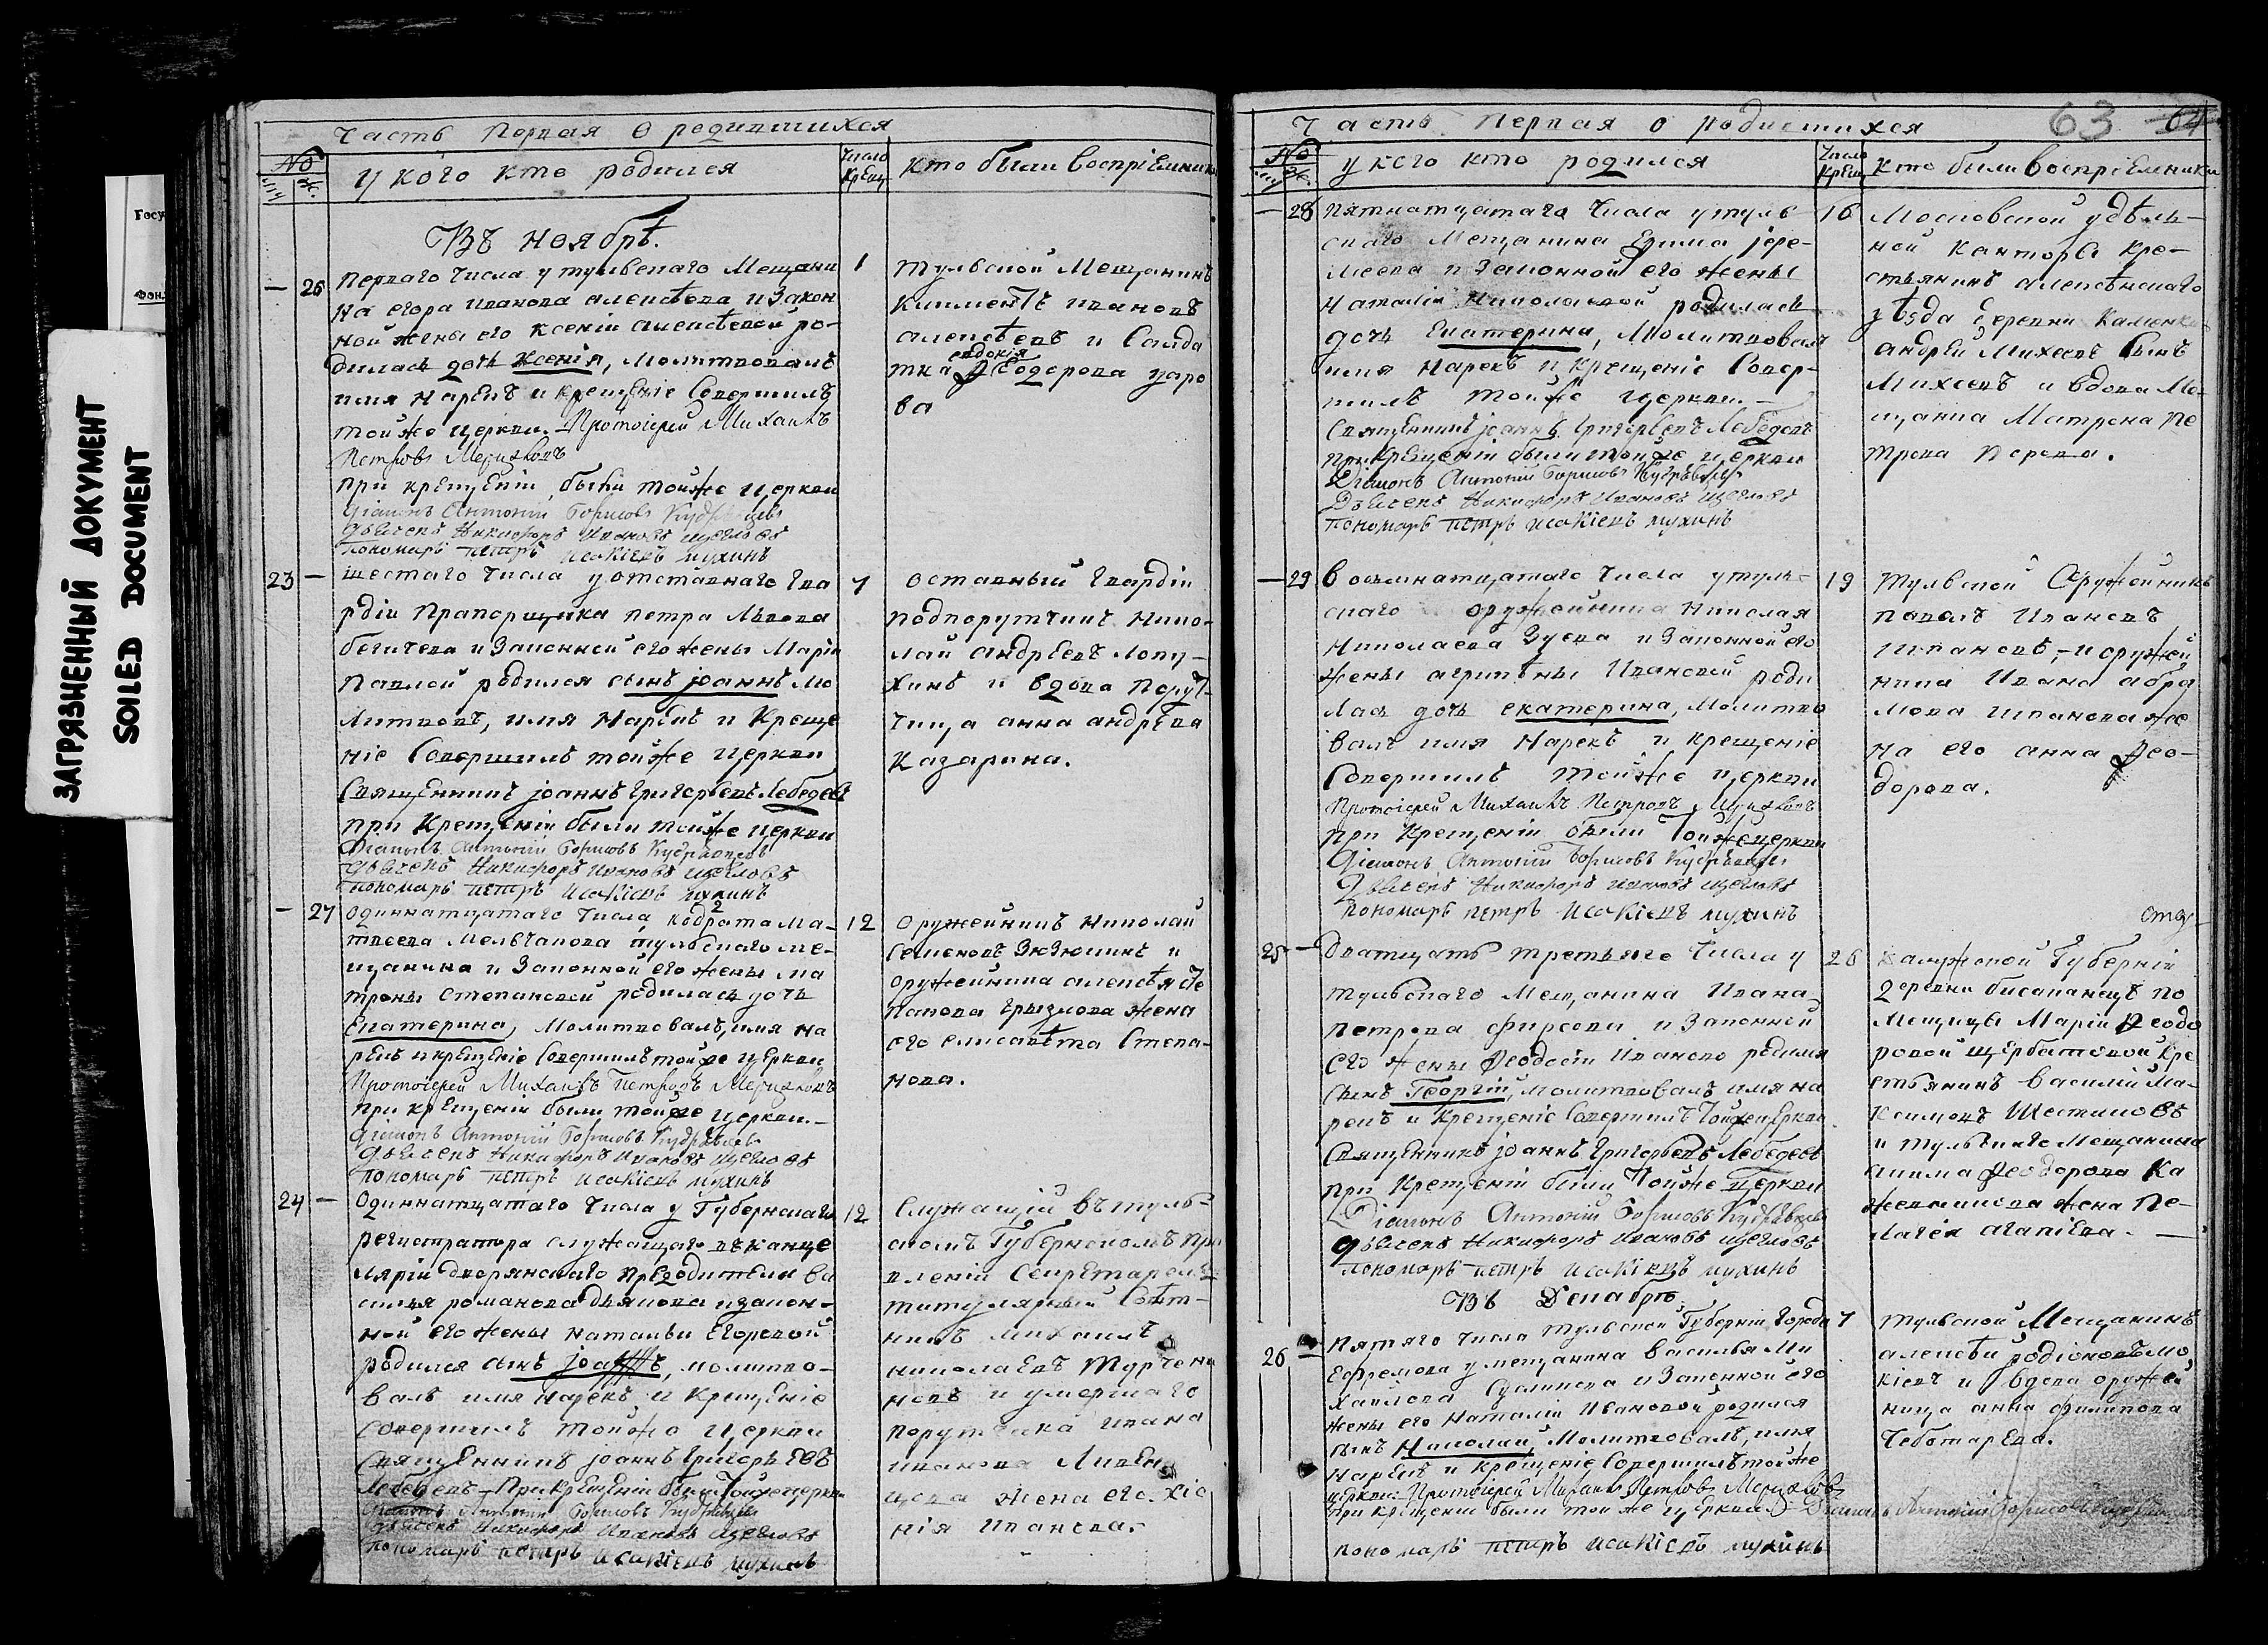 ЗАГРЯЗНЕННЫЙ ДОКУМЕНТ
SOILED DOCUMENT
Часть Первая О родившихся
№
у кого кто родился
Число Крещ
кто были восприемники
Въ ноябрѣ.
— 26
Перваго числа у тульскаго Мещани
на егора иванова алексѣева и закон
ной жены его ксеніи алексѣевой ро-
дилась дочь Ксенія, молитвовалъ
имя нарекъ и крещеніе совершилъ
той же церкви. Протоіерей Михаилъ
Петровъ
При крещеніи были той же церкви
Діаконъ Антоній Борисовъ Кудрявцевъ
дьячекъ Никифоръ Ивановъ щегловъ
пономарь петръ исакіевъ мухинъ
1
тульской Мещанинъ
климентъ ивановъ
алексѣевъ и Солда
евдокія
тка Ѳеодорова уаро
ва
23 —
шестаго числа у отставнаго гва
рдіи Прапорщика петра львова
бегичева и законной его жены Маріи
Павлой родился сынъ іоаннъ мо
литвовъ, имя нарекъ и Креще
ніе совершилъ той же церкви
Священникъ іоаннъ григорьевъ лебедевъ
при Крещеніи были той же церкви
Діаконъ Антоній Борисовъ Кудрявцевъ
дьячекъ Никифоръ Ивановъ щегловъ
пономарь петръ исакіевъ мухинъ
7
оставный гвардіи
подпорутчикъ Нико-
лай андреевъ лопу-
хинъ и вдова поруч-
чица анна андрѣва
казарина.
— 27
одиннатцатаго числа, кодрата ма-
твеева мельчакова тульскаго ме-
щанина и законной его жены ма
троны степановой родилась дочь
Екатерина, молитвовалъ, имя на
рекъ и крещеніе совершилъ той же церкви
Протоіерей Михаилъ Петровъ
при крещеніи были той же церкви.—
Діаконъ Антоній Борисовъ Кудрявцевъ
дьячекъ Никифоръ Ивановъ щегловъ
пономарь петръ исакіевъ мухинъ
12
оружейникъ николай
семеновъ зюзюкинъ и
оружейника алексѣя сте
панова грызлова жена
его елисавѣта степа-
нова.
24 —
одиннатцатаго числа у Губернскаго
регистратора служащаго въ канце
ляріи дворянскаго предводителя ва
силья романова дьякова и закон-
ной его жены натальи егоревой
родился сынъ, молитво-
валъ имя нарекъ и крещеніе
совершилъ той же церкви
Священникъ іоаннъ григорьевъ
лебедевъ — При крещеніи были той же церкви
Діаконъ Антоній Борисовъ Кудрявцевъ
дьячекъ Никифоръ Ивановъ щегловъ
пономарь петръ исакіевъ мухинъ
12
служащій въ туль-
скомъ Губернскомъ пра
вленіи секретаремъ
титулярный совѣт-
никъ михаилъ
николаевъ турчени
новъ и умершаго
порутчика ивана
иванова ливен
цова жена его
нія иванова.
63 64
Часть Первая о родившихся
№
у кого кто родился
Число Крещ
кто были восприемники
— 28
Пятнатцатаго числа у туль-
скаго Мещанина Ефима іере-
меева и законной его жены
наталіи николаевой родилась
дочь Екатерина, молитвовалъ
имя нарекъ и крещеніе совер-
шилъ той же церкви.—
Священникъ іоаннъ григорьевъ лебедевъ
при крещеніи были той же церкви
Діаконъ Антоній Борисовъ Кудрявцевъ
Дьячекъ Никифоръ Ивановъ щегловъ
пономарь петръ исакіевъ мухинъ
16
Московской удѣль-
ной канторы кре-
стьянинъ алексѣнскаго
уѣзда деревни Каменки
андрей михеевъ сынъ
Михеевъ и вдова ме-
щанка Матрона пе
трова перова.
— 29
восемнатцатаго числа у туль-
скаго оружейника николая
николаева зуева и законной его
жены агрипѣны ивановой роди
лась дочь екатерина, молитво
валъ имя нарекъ и крещеніе
совершилъ той же церкви
Протоіерей Михаилъ Петровъ
при крещеніи были той же церкви
Діаконъ Антоній Борисовъ Кудрявцевъ
дьячекъ Никифоръ Ивановъ щегловъ
пономарь петръ исакіевъ мухинъ
19
тульской оружейникъ
павелъ ивановъ
и оружей
ника ивана абра
мова же
на его анна Ѳео-
дорова.
25 —
Дватцать третьяго числа у
тульскаго мещанина ивана
петрова фирсова и законной
его жены Ѳеодосіи ивановой родился
сынъ Георгій, молитвовалъ имя на
рекъ и крещеніе совершилъ той же церкви
Священникъ іоаннъ григорьевъ лебедевъ
при крещеніи были той же церкви
Діаконъ Антоній Борисовъ Кудрявцевъ
дьячекъ Никифоръ Ивановъ щегловъ
пономарь петръ исакіевъ мухинъ
26
Калужской Губерніи
деревни по
мещицы Маріи Ѳеодо
ровой щербатовой кре
стьянинъ василій ма-
ксимовъ
и тульскаго мещанина
акима Ѳеодорова ка
жевникова жена пе-
лагея агапіева. —
Въ Декабрѣ
26 —
Пятаго числа тульской Губерніи города
Ефремова у мещанина василья ми
хайлова и законной его
жены его наталіи ивановой родился
сынъ Николай, молитвовалъ, имя
нарекъ и крещеніе совершилъ той же
церкви. Протоіерей Михаилъ Петровъ
при крещеніи были той же церкви Діаконъ Антоній Борисовъ Кудрявцевъ
пономарь петръ исакіевъ мухинъ
7
тульской мещанинъ
алексѣй родіоновъ мо
кіевъ и вдова оружей
ница анна филипова
чеботарева.